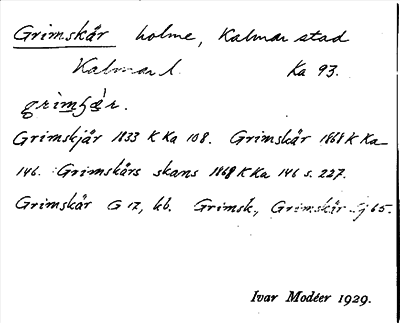 Grimskär holme, Kalmar stad
Kalmar l. Ka 93.
Grimskjär 1833 K Ka 108. Grimskär 1868 K Ka
146. Grimskärs skans 1868 K Ka 146 s. 227.
Grimskär G 17, kb. Grimsk, Grimskär 65.
Ivar Modéer 1929.